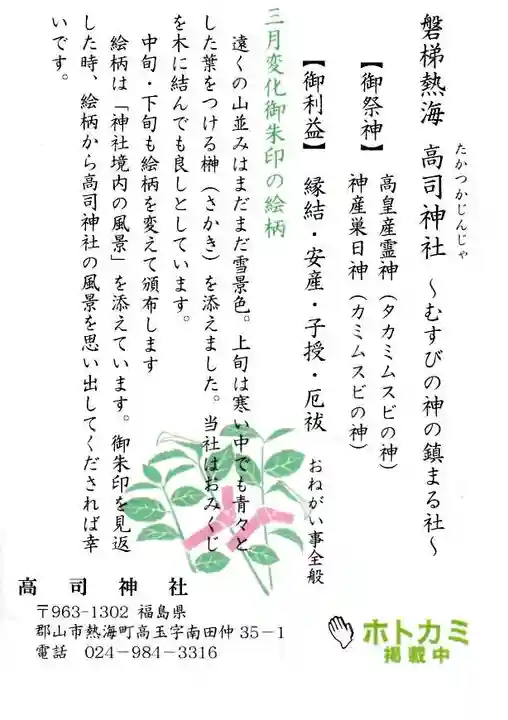 磐梯熱海 高司神社 ～むすびの神の鎮まる社～
たかつかじんじゃ
【御祭神】 高皇産霊神（タカミムスビの神）
神産巣日神（カミムスビの神）
【御利益】 縁結・安産・子授・厄祓 おねがい事全般
三月変化御朱印の絵柄
遠くの山並みはまだまだ雪景色。上旬は寒い中でも青々と
した葉をつける榊（さかき）を添えました。当社はおみくじ
を木に結んでも良しとしています。
中旬・下旬も絵柄を変えて頒布します
絵柄は「神社境内の風景」を添えています。御朱印を見返
した時、絵柄から高司神社の風景を思い出してくだされば幸
いです。
高司神社
〒963-1302 福島県
郡山市熱海町高玉字南田仲35－1
電話 024－984－3316
ホトカミ
掲載中